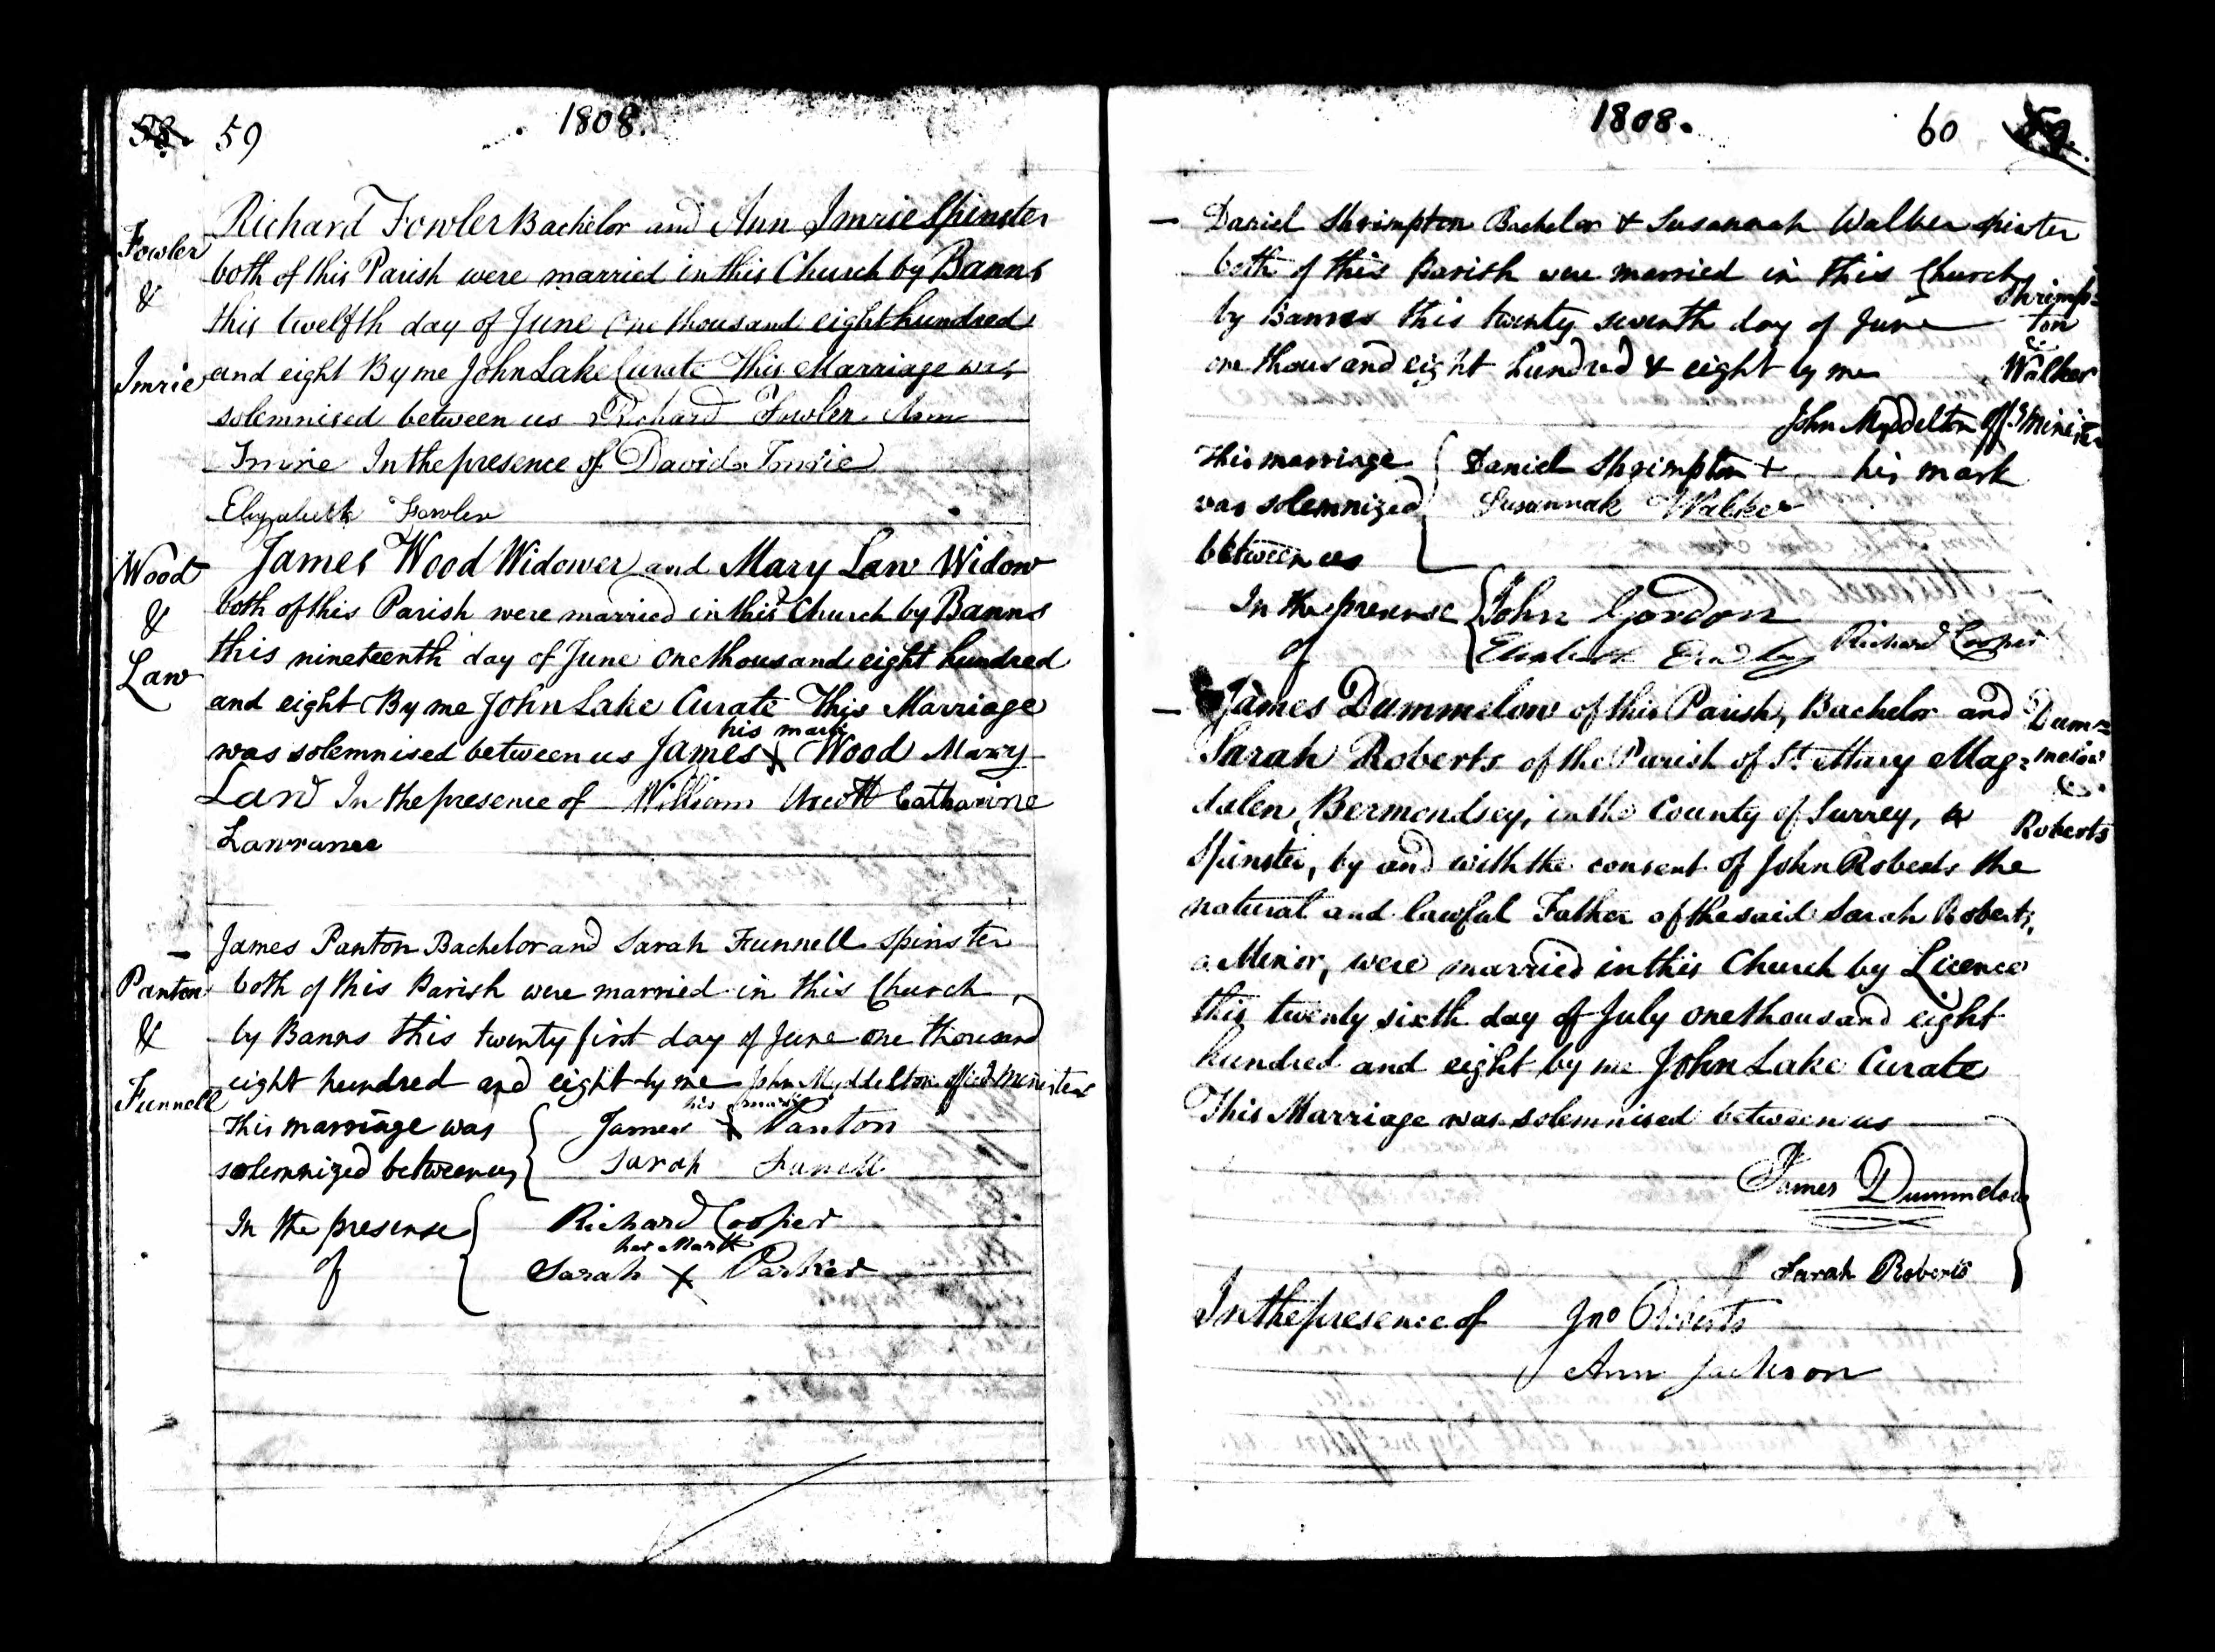 59
1808.
Fowler
&
Imrie
Richard Fowler Bachelor and Ann Imrie Spinster
both of this Parish were married in this Church by Banns
this twelfth day of June One thousand eight hundred
and eight By me John Lake Curate This Marriage was
solemnised between us Richard Fowler Ann
Imrie In the presence of David Imrie
Elizabeth Fowler
Wood
&
Law
James Wood Widower and Mary Law Widow
both of this Parish were married in this Church by Banns
this nineteenth day of June One thousand eight hundred
and eight By me John Lake Curate This Marriage
his mark
was solemnised between us James X Wood Mary
Law In the presence of William Catharine
Lawrance
Panton
&
Funnell
James Panton Bachelor and Sarah Funnell Spinster
both of this Parish were married in this Church
by Banns this twenty first day of June one thousand
eight hundred and eight by me John Myddelton Minister
his mark
This marriage was { James X Panton
solemnized between us { Sarah Funell
In the presense { Richard Cooper
her Mark
of { Sarah X Parker
1808.
60
— Daniel Shrimpton Bachelor & Susannah Walker Spinster
both of this Parish were married in this Church
by Banns this twenty seventh day of June
one thousand eight hundred & eight by me
John Myddelton Minister
Shrimp=
ton
&
Walker
This marriage { Daniel Shrimpton + his mark
was solemnized { Susannah Walker
between us
In the presense { John Gordon
of { Elizabeth Richard Cooper
— James Dummelow of this Parish, Bachelor and
Sarah Roberts of the Parish of St. Mary Mag=
dalen, Bermondsey, in the County of Surrey,
Spinster, by and with the consent of John Roberts the
natural and lawful Father of the said Sarah Roberts,
a Minor, were married in this Church by Licence
this twenty sixth day of July one thousand eight
hundred and eight by me John Lake Curate
This Marriage was solemnised between us
Dum=
melow
&
Roberts
James Dummelow
Sarah Roberts
In the presence of Jno Roberts
Ann Jackson